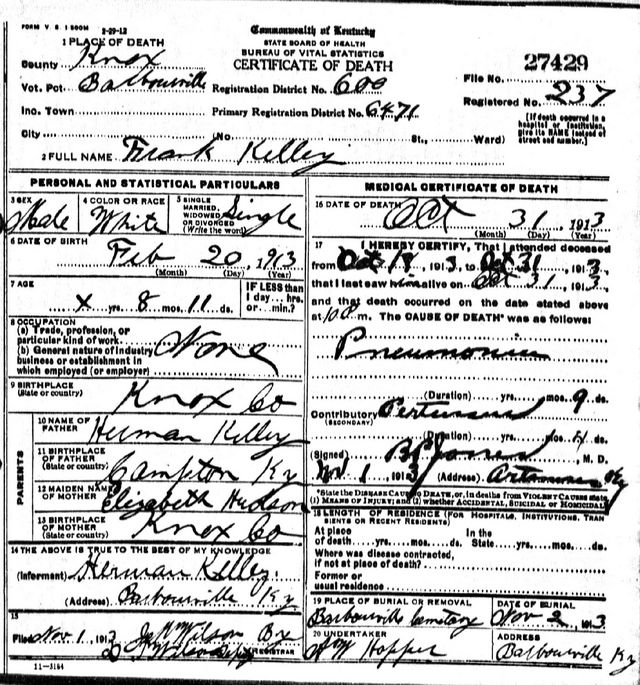 FORM V. S. 1 500M 3-29-12
Commonwealth of Kentucky
STATE BOARD OF HEALTH
BUREAU OF VITAL STATISTICS
CERTIFICATE OF DEATH
1 PLACE OF DEATH
County Knox
Vot. Pct. Barbourville
Inc. Town
City
Registration District No. 600
Primary Registration District No. 6471
(No. St., Ward)
27429
File No.
Registered No. 237
(If death occurred in a hospital or institution, give its NAME instead of street and number.)
2 FULL NAME Frank Kelley
PERSONAL AND STATISTICAL PARTICULARS
3 SEX Male
4 COLOR OR RACE White
5 SINGLE, MARRIED, WIDOWED OR DIVORCED (Write the word) Single
6 DATE OF BIRTH Feb 20, 1913
(Month) (Day) (Year)
7 AGE x yrs. 8 mos. 11 ds.
IF LESS than 1 day... hrs. or... min.?
8 OCCUPATION
(a) Trade, profession, or particular kind of work
(b) General nature of industry business or establishment in which employed (or employer) None
9 BIRTHPLACE (State or country) Knox Co
PARENTS
10 NAME OF FATHER Herman Kelley
11 BIRTHPLACE OF FATHER (State or country) Campton Ky
12 MAIDEN NAME OF MOTHER Elizabeth Hudson
13 BIRTHPLACE OF MOTHER (State or country) Knox Co
14 THE ABOVE IS TRUE TO THE BEST OF MY KNOWLEDGE
(Informant) Herman Kelley
(Address) Barbourville Ky
15
Filed Nov 1, 1913 Wilson By
REGISTRAR
11-3184
MEDICAL CERTIFICATE OF DEATH
16 DATE OF DEATH Oct 31 1913
(Month) (Day) (Year)
17 I HEREBY CERTIFY, That I attended deceased
from Oct 18, 1913, to Oct 31, 1913,
that I last saw him alive on Oct 31, 1913,
and that death occurred on the date stated above
at m. The CAUSE OF DEATH* was as follows:
Pneumonia
(Duration) yrs. mos. 9 ds.
Contributory (SECONDARY) Pertussis
(Duration) yrs. mos. ds.
(Signed) Jones, M. D.
Nov 1, 1913 (Address) Artemus Ky
*State the DISEASE CAUSING DEATH, or, in deaths from VIOLENT CAUSES state (1) MEANS OF INJURY; and (2) whether ACCIDENTAL, SUICIDAL or HOMICIDAL
18 LENGTH OF RESIDENCE (FOR HOSPITALS, INSTITUTIONS, TRANSIENTS OR RECENT RESIDENTS)
At place of death yrs. mos. ds. In the State yrs. mos. ds.
Where was disease contracted, if not at place of death?
Former or usual residence
19 PLACE OF BURIAL OR REMOVAL Barbourville Cemetary
DATE OF BURIAL Nov 2, 1913
20 UNDERTAKER Hopper
ADDRESS Barbourville Ky